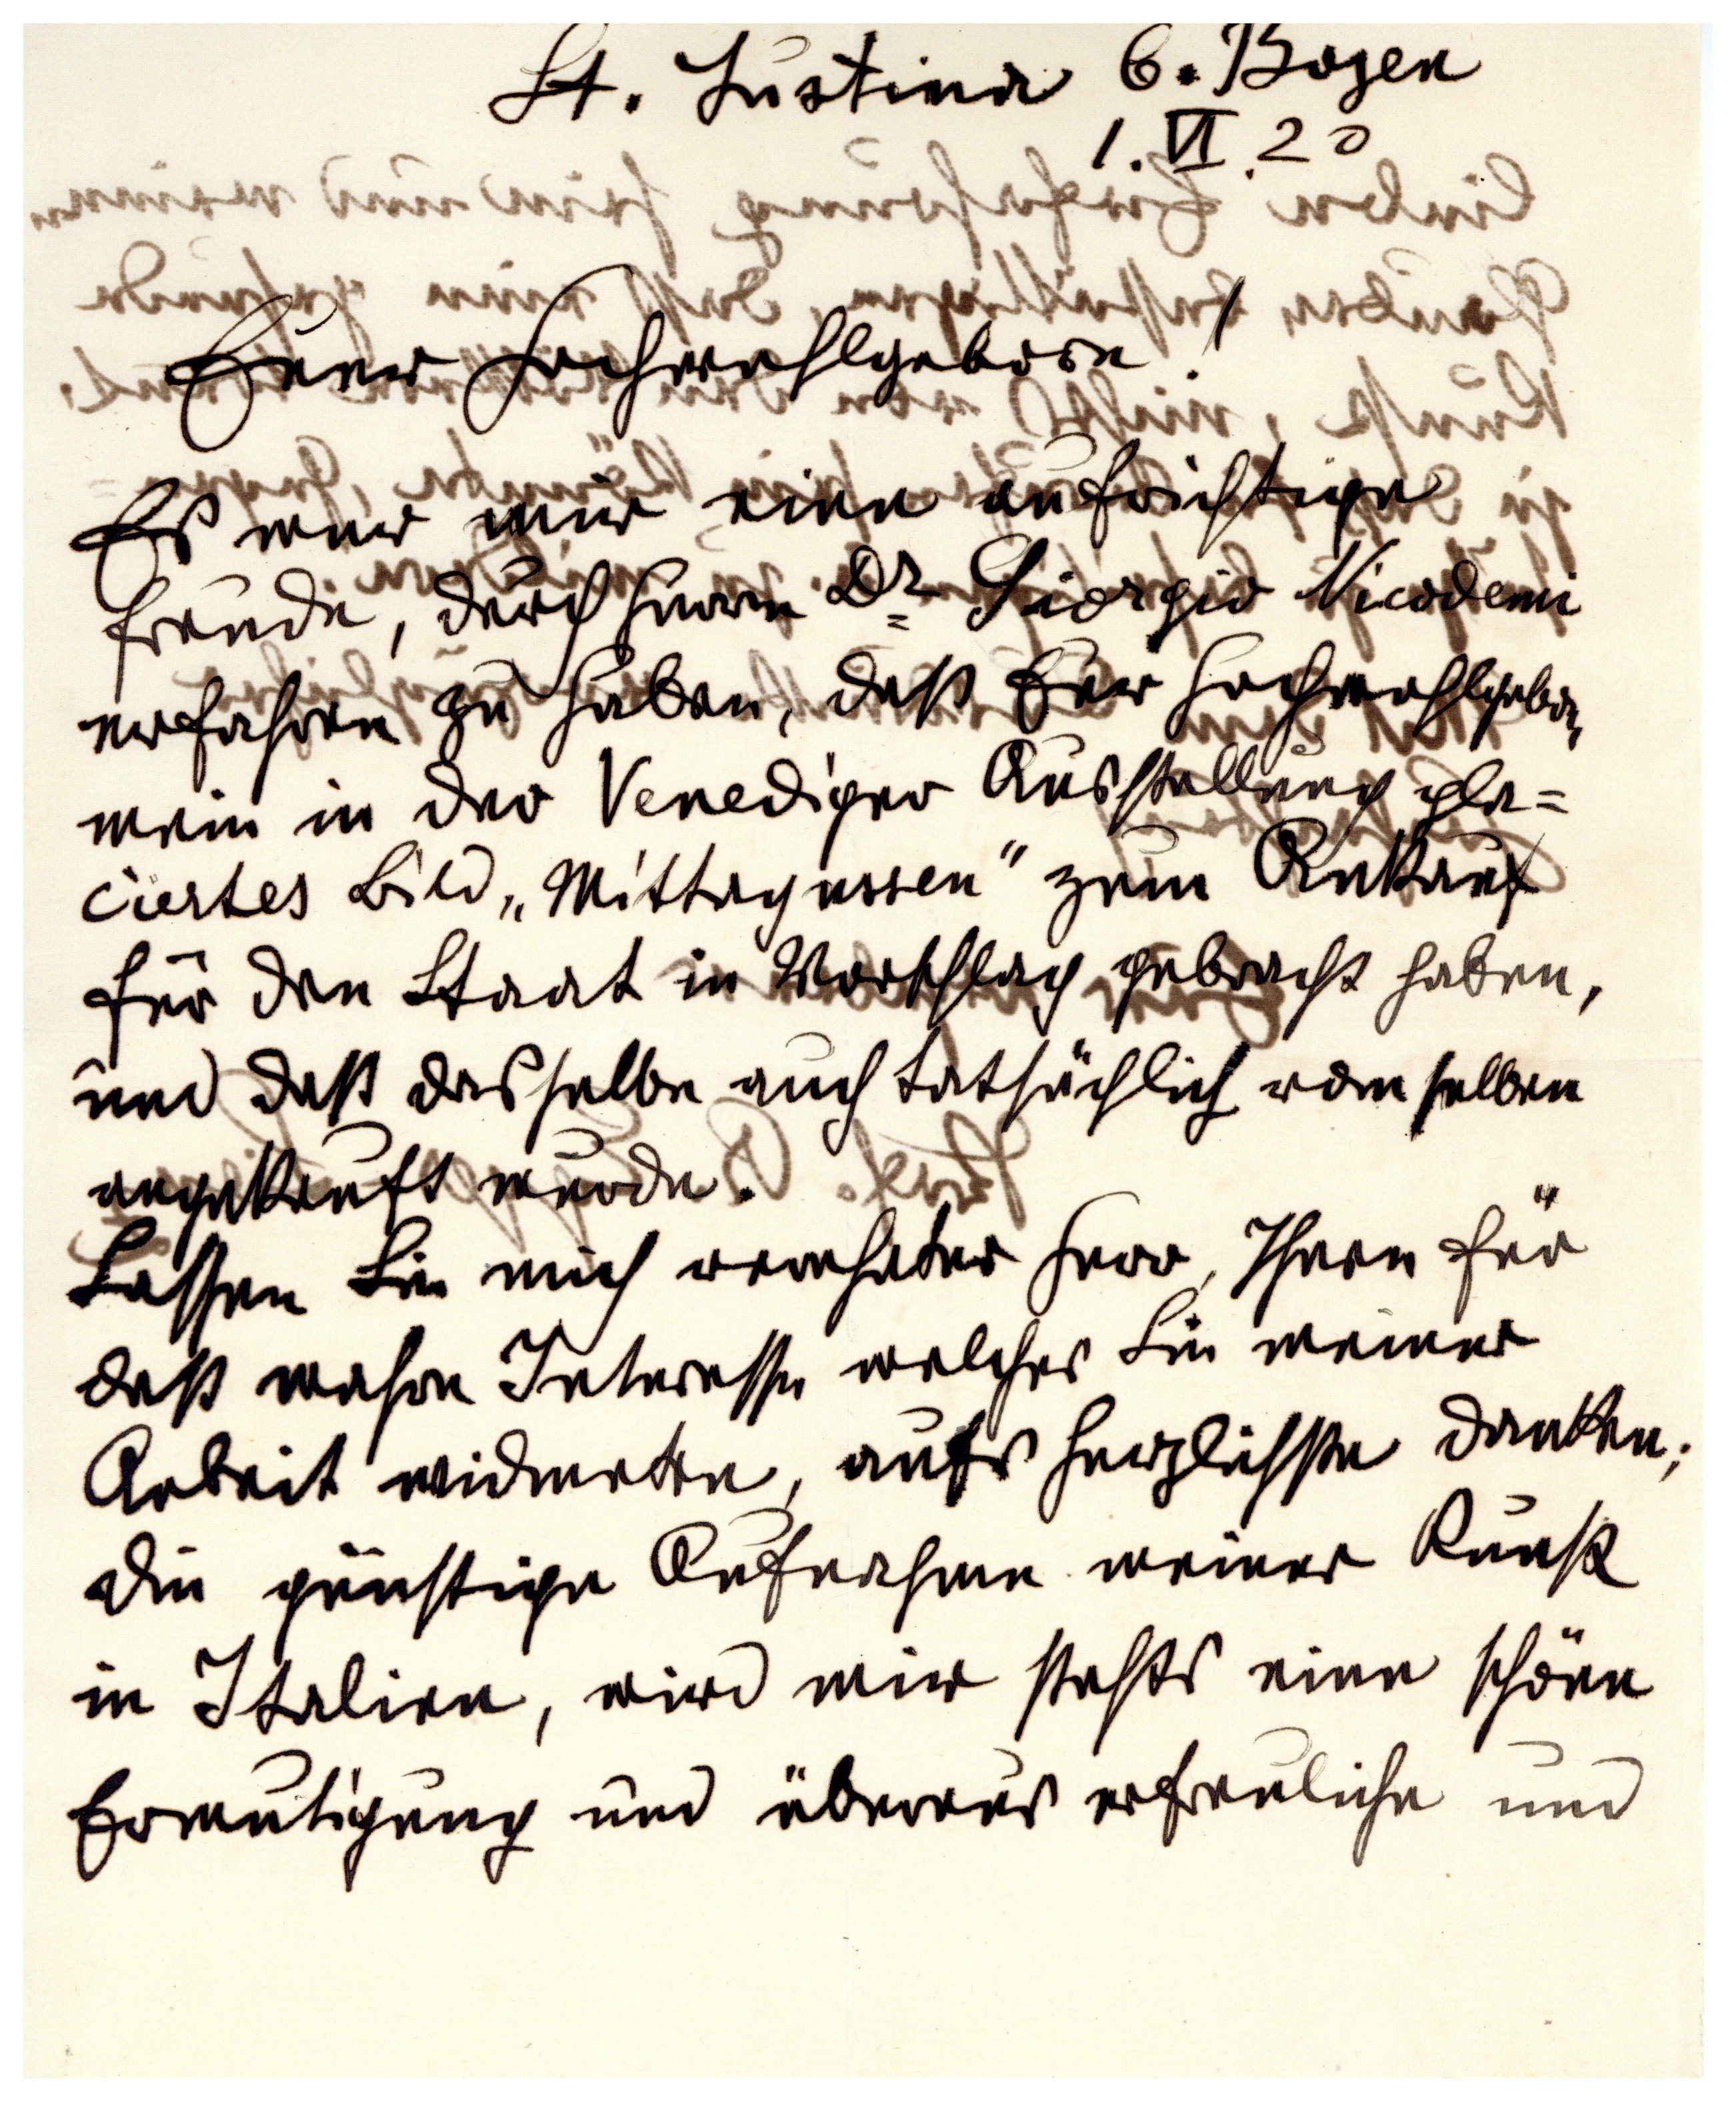 St. Justina b. Bozen
1. VI. 20
Euer Hochwohlgeboren!
Es war mir eine aufrichtige
Freude, durch Herrn Dr Giorgio Nicodemi
erfahren zu haben, daß Euer Hochwohlgebor.
mein in der Venediger Ausstellung pla=
ciertes Bild „Mittagessen“ zum Ankauf
für den Staat in Vorschlag gebracht haben,
und daß dasselbe auch tatsächlich vom selben
angekauft wurde.
Lassen Sie mich verehrter Herr, Ihnen für
daß wahre Interesse welches Sie meiner
Arbeit widmeten, aufs herzlichste danken;
die günstige Aufnahme meiner Kunst
in Italien, wird mir stehts eine schöne
Ermutigung und überaus erfreuliche und